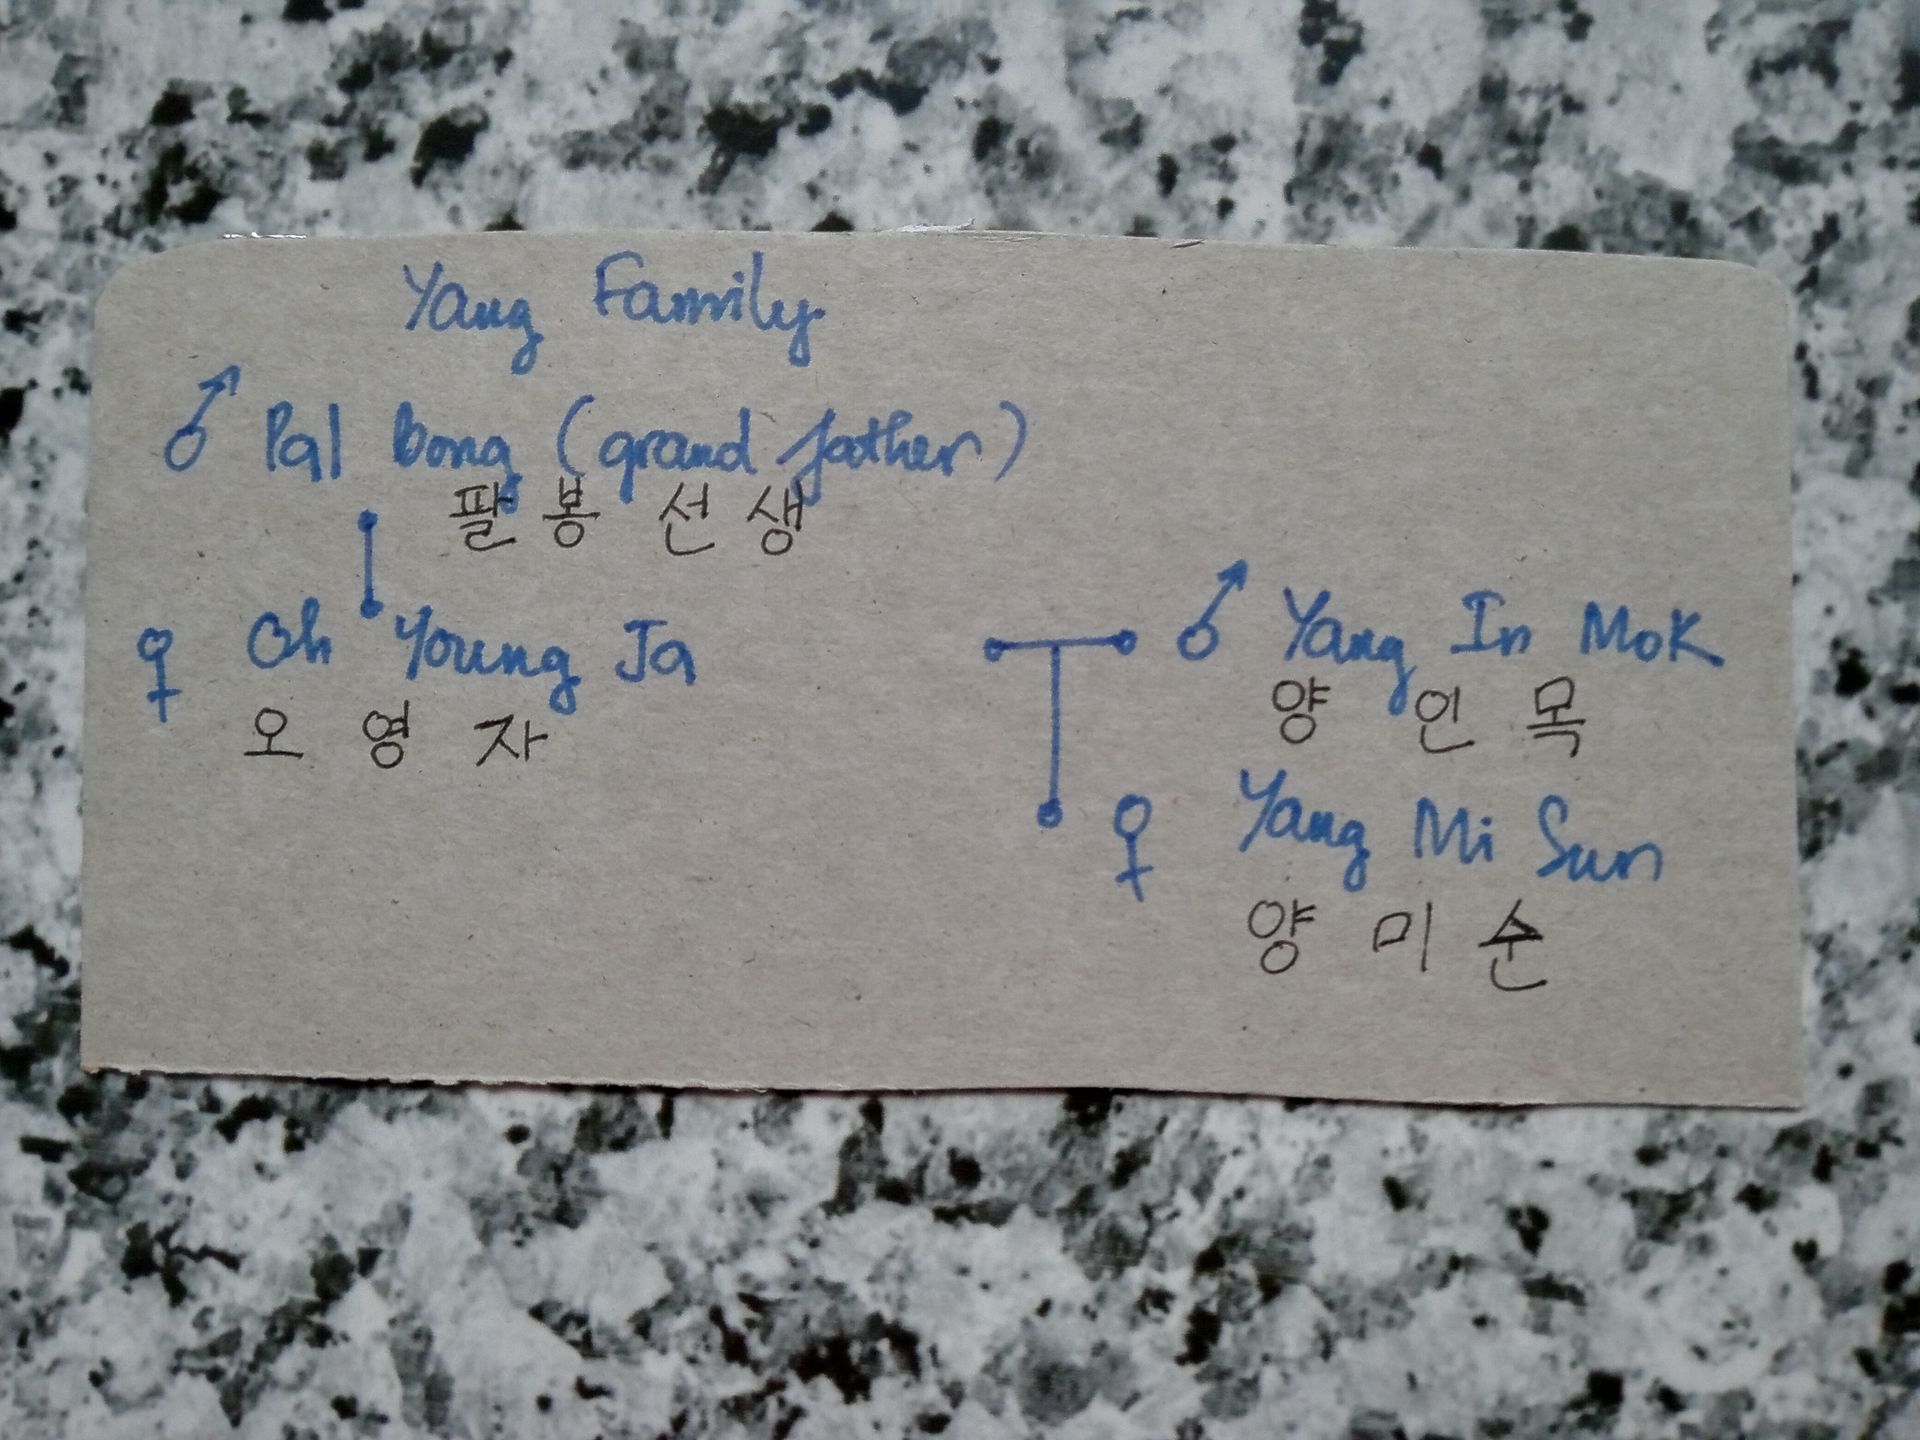 Yang Family
♂ Pal bong (grand father)
팔 봉 선 생
♀ Oh Young Ja
오 영 자
♂ Yang In Mok
양 인 목
♀ Yang Mi Sun
양 미 순